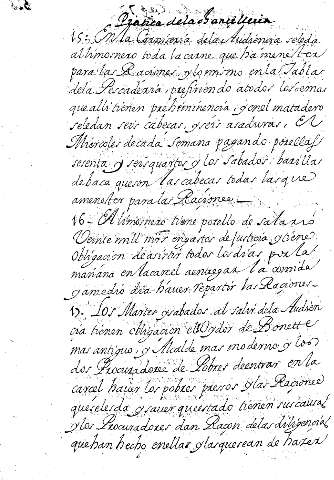 Pratica de la Chancilleria
15. En la Carniceria de la Audiencia se le da
al limosnero toda la carne que ha menester
para las Raciones, y lo mismo en la Tabla
de la Pescaderia, prefiriendo a todos los demas
que alli tienen prehiminencia, y en el matadero
se le dan seis cabezas, y seis asaduras, El
Miercoles de cada Semana pagando por ellas
sesenta y seis quartos y los Sabados:
de baca que son las cabezas todas las que
a menester para las Raciones.
16. Al limosnero tiene por ello de salario
Veinte mil mrs en gastos de justicia y tiene
Obligacion de asistir todos los dias por la
mañana en la carcel a entregar la comida
y a medio dia a hacer repartir las Raciones.
17. Los Martes y sabados al salir de la Audien
cia tienen obligacion el Oydor de
mas antiguo, y Alcalde mas moderno y los
dos Procuradores de Pobres de entrar en la
carcel hacer los pobres presos y las Raciones
que se les da y saver que estado tienen sus causas
y los Procuradores dan Razon de las diligencias
que han hecho en ellas y las quesean de hazer